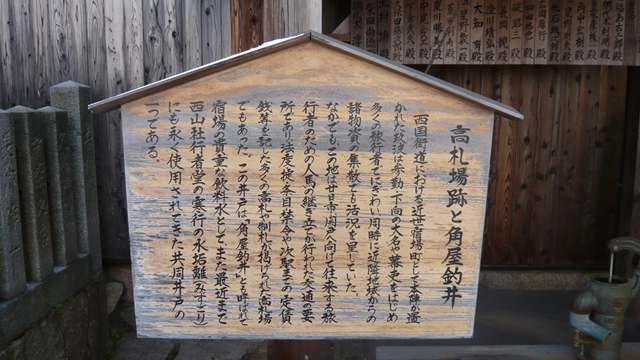 高札場跡と角屋釣井
西国街道における近世宿場町として本陣が置
かれた玖波は参勤・下向の大名や藩吏をはじめ
多くの旅行者でにぎわい同時に近隣村からの
諸物資の集散でも活況を呈していた。
なかでもこの地は廿日市・関戸へ向け往来する旅
行者のための人馬の継ぎ立てが行われた交通の要
所であり法度・掟・条目・禁令や次駅までの定賃
銭等を記した多くの高札や制札が掲げられ「高札場」
でもあった。この井戸は「角屋釣井」とも呼ばれて
宿場の貴重な飲料水として、また最近まで
西山社行者堂の寒行の水垢離(みずごり)
にも永く使用されてきた共同井戸の
一つである。